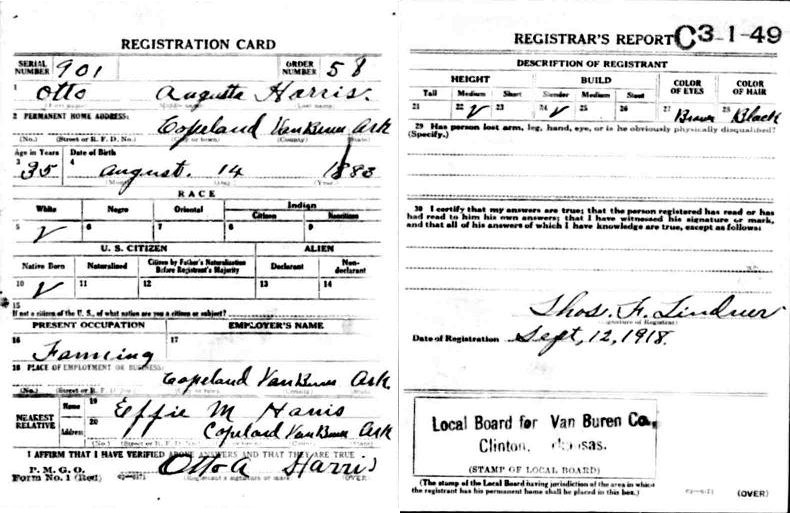 REGISTRATION CARD
SERIAL NUMBER 901 ORDER NUMBER 58
1 Otto Augusta Harris.
2 PERMANENT HOME ADDRESS:
Copeland Van Buren Ark
(No.) (Street or R. F. D. No.) (City or town) (County) (State)
Age in Years Date of Birth
3 35 4 August. 14 1883
(Month) (Day) (Year)
RACE
White Negro Oriental Indian
Citizen Noncitizen
5 ✓ 6 7 8 9
U. S. CITIZEN ALIEN
Native Born Naturalized Citizen by Father's Naturalization Before Registrant's Majority Declarant Non-declarant
10 ✓ 11 12 13 14
15
If not a citizen of the U. S., of what nation are you a citizen or subject?
PRESENT OCCUPATION EMPLOYER'S NAME
16 Farming 17
18 PLACE OF EMPLOYMENT OR BUSINESS:
Copeland Van Buren Ark
(No.) (Street or R. F. D. No.) (City or town) (County) (State)
NEAREST RELATIVE Name 19 Effie M Harris
Address 20 Copeland Van Buren Ark
(No.) (Street or R. F. D. No.) (City or town) (County) (State)
I AFFIRM THAT I HAVE VERIFIED ABOVE ANSWERS AND THAT THEY ARE TRUE
P. M. G. O.
Form No. 1 (Red) Otto A Harris
(Registrant's signature or mark) (OVER)
REGISTRAR'S REPORT C3-1-49
DESCRIPTION OF REGISTRANT
HEIGHT BUILD COLOR OF EYES COLOR OF HAIR
Tall Medium Short Slender Medium Stout
21 22 ✓ 23 24 ✓ 25 26 27 Brown 28 Black
29 Has person lost arm, leg, hand, eye, or is he obviously physically disqualified?
(Specify.)
30 I certify that my answers are true; that the person registered has read or has
had read to him his own answers; that I have witnessed his signature or mark,
and that all of his answers of which I have knowledge are true, except as follows:
Thos. F. Lindner
(Signature of Registrar)
Date of Registration Sept, 12, 1918.
Local Board for Van Buren Co.,
Clinton, Arkansas.
(STAMP OF LOCAL BOARD)
(The stamp of the Local Board having jurisdiction of the area in which
the registrant has his permanent home shall be placed in this box.)
(OVER)